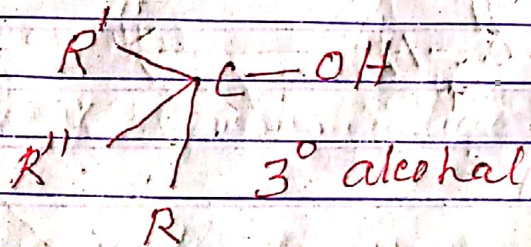 R' C-OH
R'' 3° alcohal
R